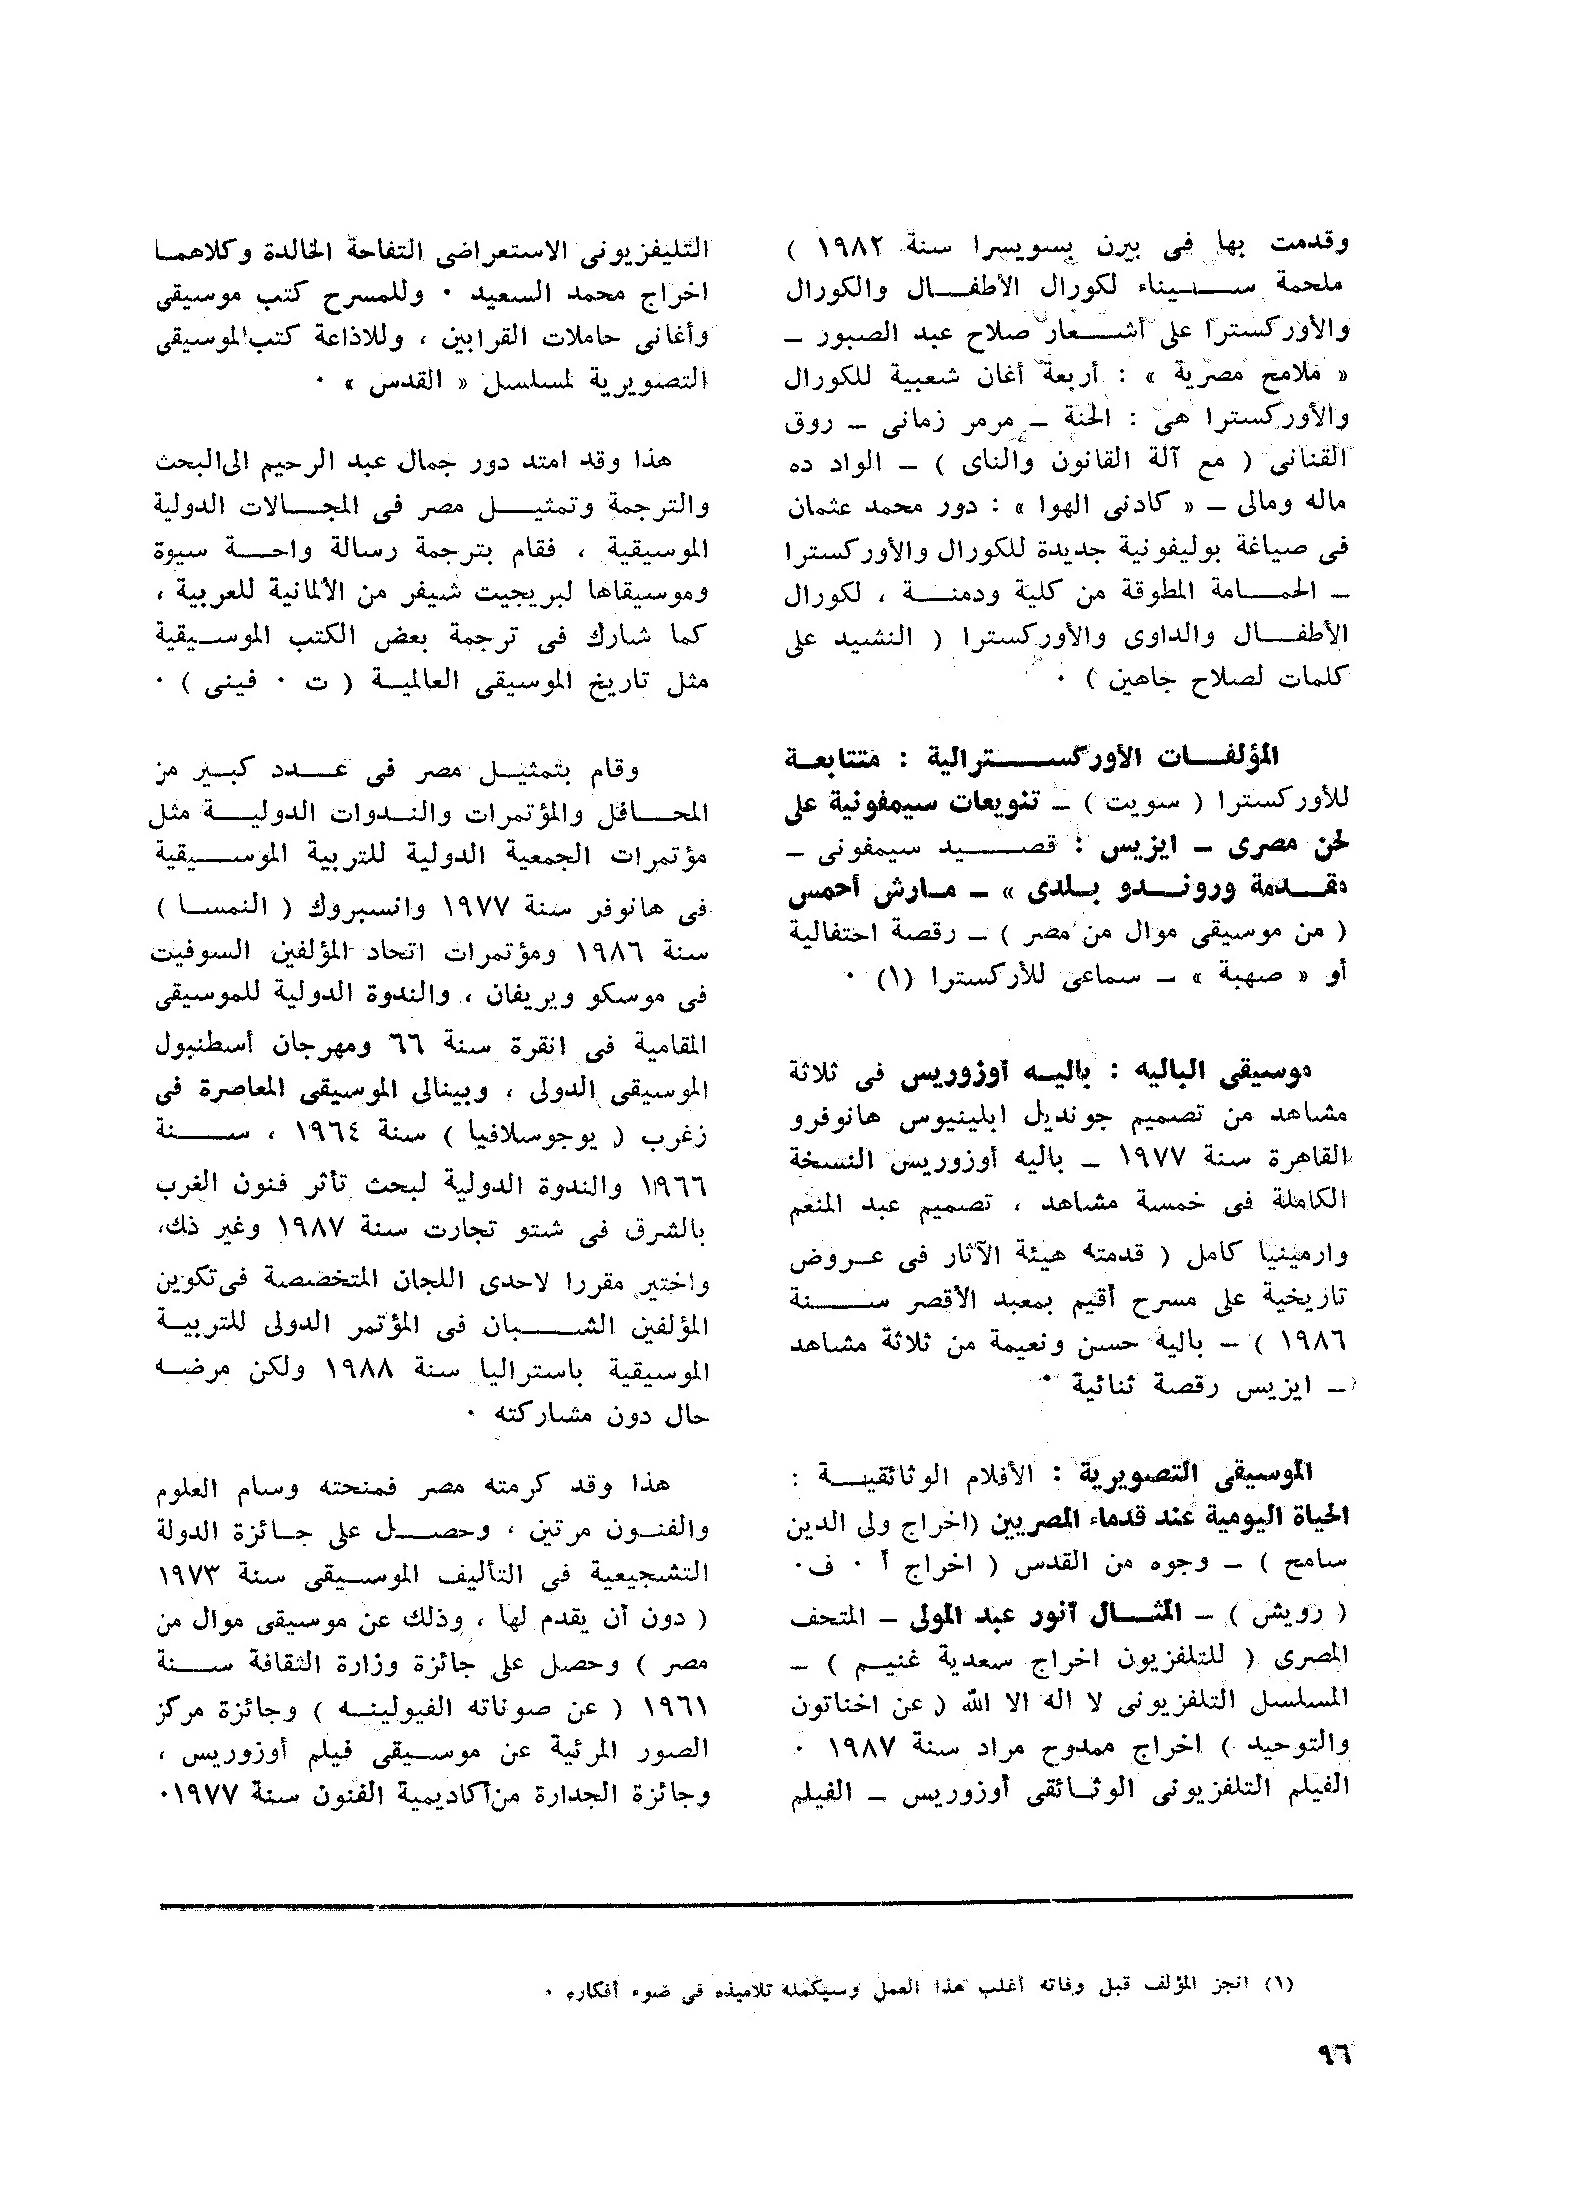 وقدمت بها فى بيرن بسويسرا سنة ١٩٨٢ )
ملحمة ســيناء لكورال الأطفــال والكورال
والأوركسترا على أشــعار صلاح عبد الصبور –
« ملامح مصرية » : أربعة أغان شعبية للكورال
والأوركسترا هى : الحنة – مرمر زمانى – روق
القنانى ( مع آلة القانون والناى ) – الواد ده
ماله ومالى – « كادنى الهوا » : دور محمد عثمان
فى صياغة بوليفونية جديدة للكورال والأوركسترا
– الحمــامة المطوقة من كلية ودمنــة ، لكورال
الأطفــال والداوى والأوركسترا ( النشيد على
كلمات لصلاح جاهين ) ٠
المؤلفــات الأوركســترالية : متتابعــة
للأوركسترا ( سويت ) – تنويعات سيمفونية على
لحن مصرى – ايزيس : قصــيد سيمفونى –
مقــدمة ورونــدو بــلدى » – مــارش أحمس
( من موسيقى موال من مصر ) – رقصة احتفالية
أو « صهبة » – سماعى للأركسترا (١) ٠
موسيقى الباليه : باليــه أوزوريس فى ثلاثة
مشاهد من تصميم جونديل ابلينيوس هانوفرو
القاهرة سنة ١٩٧٧ – باليه أوزوريس النسخة
الكاملة فى خمسة مشاهد ، تصميم عبد المنعم
وارمينيا كامل ( قدمته هيئة الآثار فى عــروض
تاريخية على مسرح أقيم بمعبد الأقصر ســنة
١٩٨٦ ) – باليه حسن ونعيمة من ثلاثة مشاهد
– ايزيس رقصة ثنائية ٠
الموسيقى التصويرية : الأفلام الوثائقيــة :
الحياة اليومية عند قدماء المصريين (اخراج ولى الدين
سامح ) – وجوه من القدس ( اخراج أ ٠ ف٠
( رويش ) – المثــال أنور عبد المولى – المتحف
المصرى ( للتلفزيون اخراج سعدية غنيــم ) –
المسلسل التلفزيونى لا اله الا الله ( عن اخناتون
والتوحيد ) اخراج ممدوح مراد سنة ١٩٨٧ ٠
الفيلم التلفزيونى الوثــائقى أوزوريس – الفيلم
التليفزيونى الاستعراضى التفاحة الخالدة وكلاهمــا
اخراج محمد السعيد ٠ وللمسرح كتب موسيقى
وأغانى حاملات القرابين ، وللاذاعة كتب الموسيقى
التصويرية لمسلسل « القدس » ٠
هذا وقد امتد دور جمال عبد الرحيم الى البحث
والترجمة وتمثيــل مصر فى المجــالات الدولية
الموسيقية ، فقام بترجمة رسالة واحــة سيوة
وموسيقاها لبريجيت شيفر من الألمانية للعربية ،
كما شارك فى ترجمة بعض الكتب الموســيقية
مثل تاريخ الموسيقى العالميــة ( ت ٠ فينى ) ٠
وقام بتمثيــل مصر فى عــدد كبــير من
المحــافل والمؤتمرات والنــدوات الدوليــة مثل
مؤتمرات الجمعية الدولية للتربية الموســيقية
فى هانوفر سنة ١٩٧٧ وانسبروك ( النمســا )
سنة ١٩٨٦ ومؤتمرات اتحاد المؤلفين السوفيت
فى موسكو ويريفان ، والندوة الدولية للموسيقى
المقامية فى انقرة سنة ٦٦ ومهرجان أسطنبول
الموسيقى الدولى ، وبينالى الموسيقى المعاصرة فى
زغرب ( يوجوسلافيا ) سنة ١٩٦٤ ، ســنة
١٩٦٦ والندوة الدولية لبحث تأثر فنون الغرب
بالشرق فى شتو تجارت سنة ١٩٨٧ وغير ذك،
واختير مقررا لاحدى اللجان المتخصصة فى تكوين
المؤلفين الشــبان فى المؤتمر الدولى للتربيــة
الموسيقية باستراليا سنة ١٩٨٨ ولكن مرضــه
حال دون مشاركته ٠
هذا وقد كرمته مصر فمنحته وسام العلوم
والفنــون مرتين ، وحصــل على جــائزة الدولة
التشجيعية فى التأليف الموســيقى سنة ١٩٧٣
( دون أن يقدم لها ، وذلك عن موسيقى موال من
مصر ) وحصل على جائزة وزارة الثقافة ســنة
١٩٦١ ( عن صوناته الفيولينــه ) وجائزة مركز
الصور المرئية عن موســيقى فيلم أوزوريس ،
وجائزة الجدارة من أكاديمية الفنون سنة ١٩٧٧٠
(١) انجز المؤلف قبل وفاته أغلب هذا العمل وسيكمله تلاميذه فى ضوء أفكاره ٠
٩٦